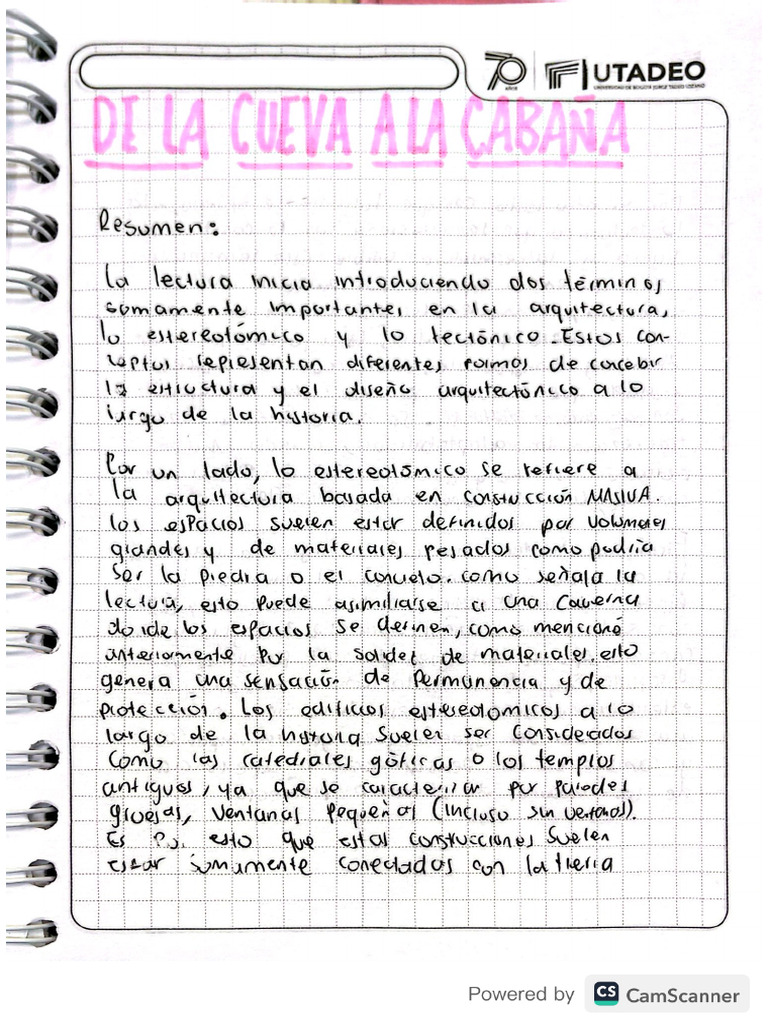 70 años
UTADEO
UNIVERSIDAD DE BOGOTÁ JORGE TADEO LOZANO
DE LA CUEVA A LA CABAÑA
Resumen:
La lectura inicia introduciendo dos términos
somamente importantes en la arquitectura,
lo estereotómico y lo tectónico. Estos con-
ceptos representan diferentes formos de concebir
la estructura y el diseño arquitectónico a lo
largo de la historia.
Por un lado, lo estereotómico se refiere a
la arquitectura basada en construcción MASIVA.
los espacios suelen estar definidos por volumenes
grandes y de materiales pesados como podria
ser la piedra o el concreto. como señala la
lectura, esto puede asimilarse a una caverna
donde los espacios se definen, como mencioné
anteriormente por la solidez de materiales. esto
genera una sensación de permanencia y de
protección. Los edificios estereotomicos a lo
largo de la historia suelen ser considerados
como las catedrales góticas o los templos
antiguos, ya que se caracterizan por paredes
gruesas, ventanas pequeñas (incluso sin ventanas).
Es por esto que estas construcciones suelen
estar sumamente conectados con la tierra
Powered by CS CamScanner